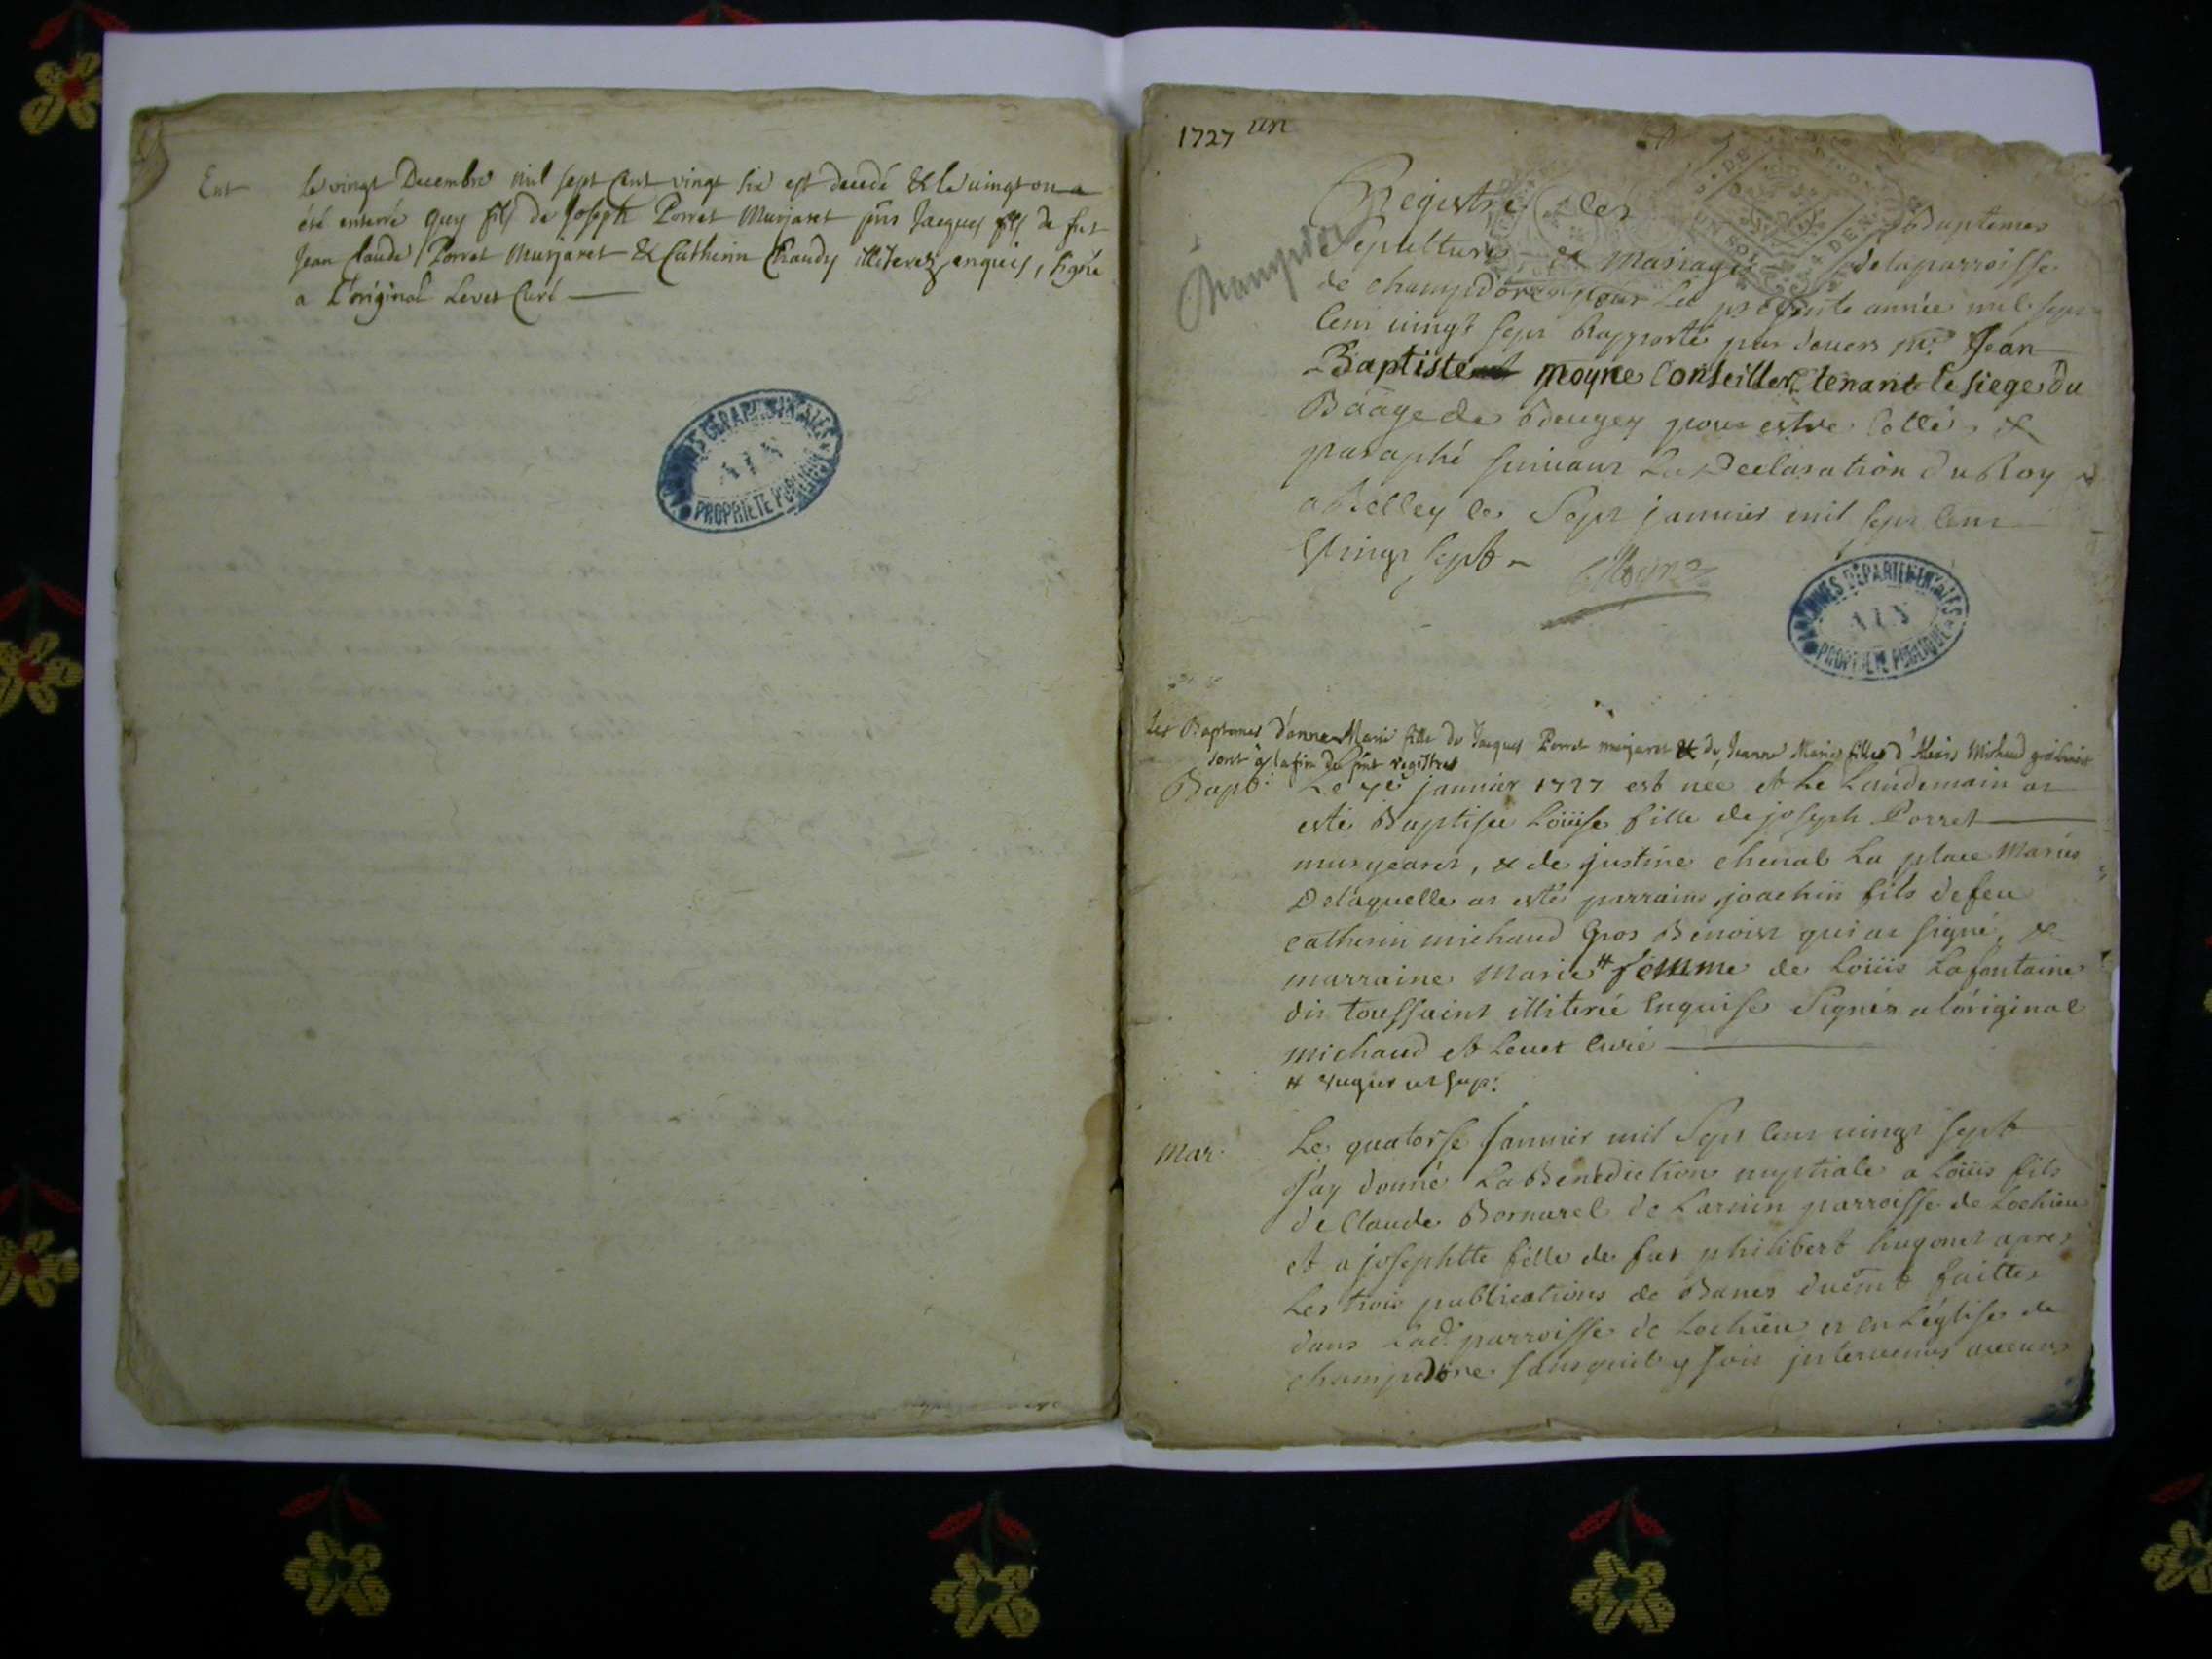 Ent le vingt Decembre mil sept Cent vingt six est decedé & le vingt on a
été enterré Guy fils de Joseph Porret Murjaret pns Jacques fils de fut
Jean Claude Porret Murjaret & Catherin Chaudy illiterez enquis, signé
a L'original Levet Curé
ARCHIVES DEPARTEMENTALES
AIN
PROPRIETE PUBLIQUE
1727 un
Registre des Baptemes
Sepultures et Mariages de la parroisse
Champdor
de champdore pour la presente année mil sept
Cent vingt sept Rapporté par devers Mr. Jean
Baptiste moyne Conseiller tenant le siege du
Baage de Beugey pour estre Cotté &
paraphé suivant La Declaration du Roy
a Belley le Sept janvier mil sept Cent
Vingt sept Moyne
ARCHIVES DEPARTEMENTALES
AIN
PROPRIETE PUBLIQUE
Les Baptemes d'anne Marie fille de Jacques Porret murjaret & de Jeanne Marie fille d'Alexis Michaud gros benoit
sont a la fin du pnt registre
Bapt. Le 7e janvier 1727 est née et Le Landemain at
esté Baptisée Loüise fille de joseph Porret
muryearet, & de justine chenal La place Mariés
De laquelle at esté parrain joachin fils de feu
catherin michaud Gros Benoist qui at signé, &
marraine Marie # femme de Loüis Lafontaine
dit toussaint illiterée Enquise Signés a l'original
michaud et Levet Curé
# sugier at sup.
Mar. Le quatorse Janvier mil Sept Cent vingt sept
J'ay donné La Benediction nuptiale a Loüis fils
de Claude Bornarel de Larnin parroisse de Lochieu
et a josephtte fille de fut philibert hugonet apres
Les trois publications de Bancs duëmt faittes
dans Lad. parroisse de Lochieu et en L'église de
champdore sans quil y soit jntervenus aucuns